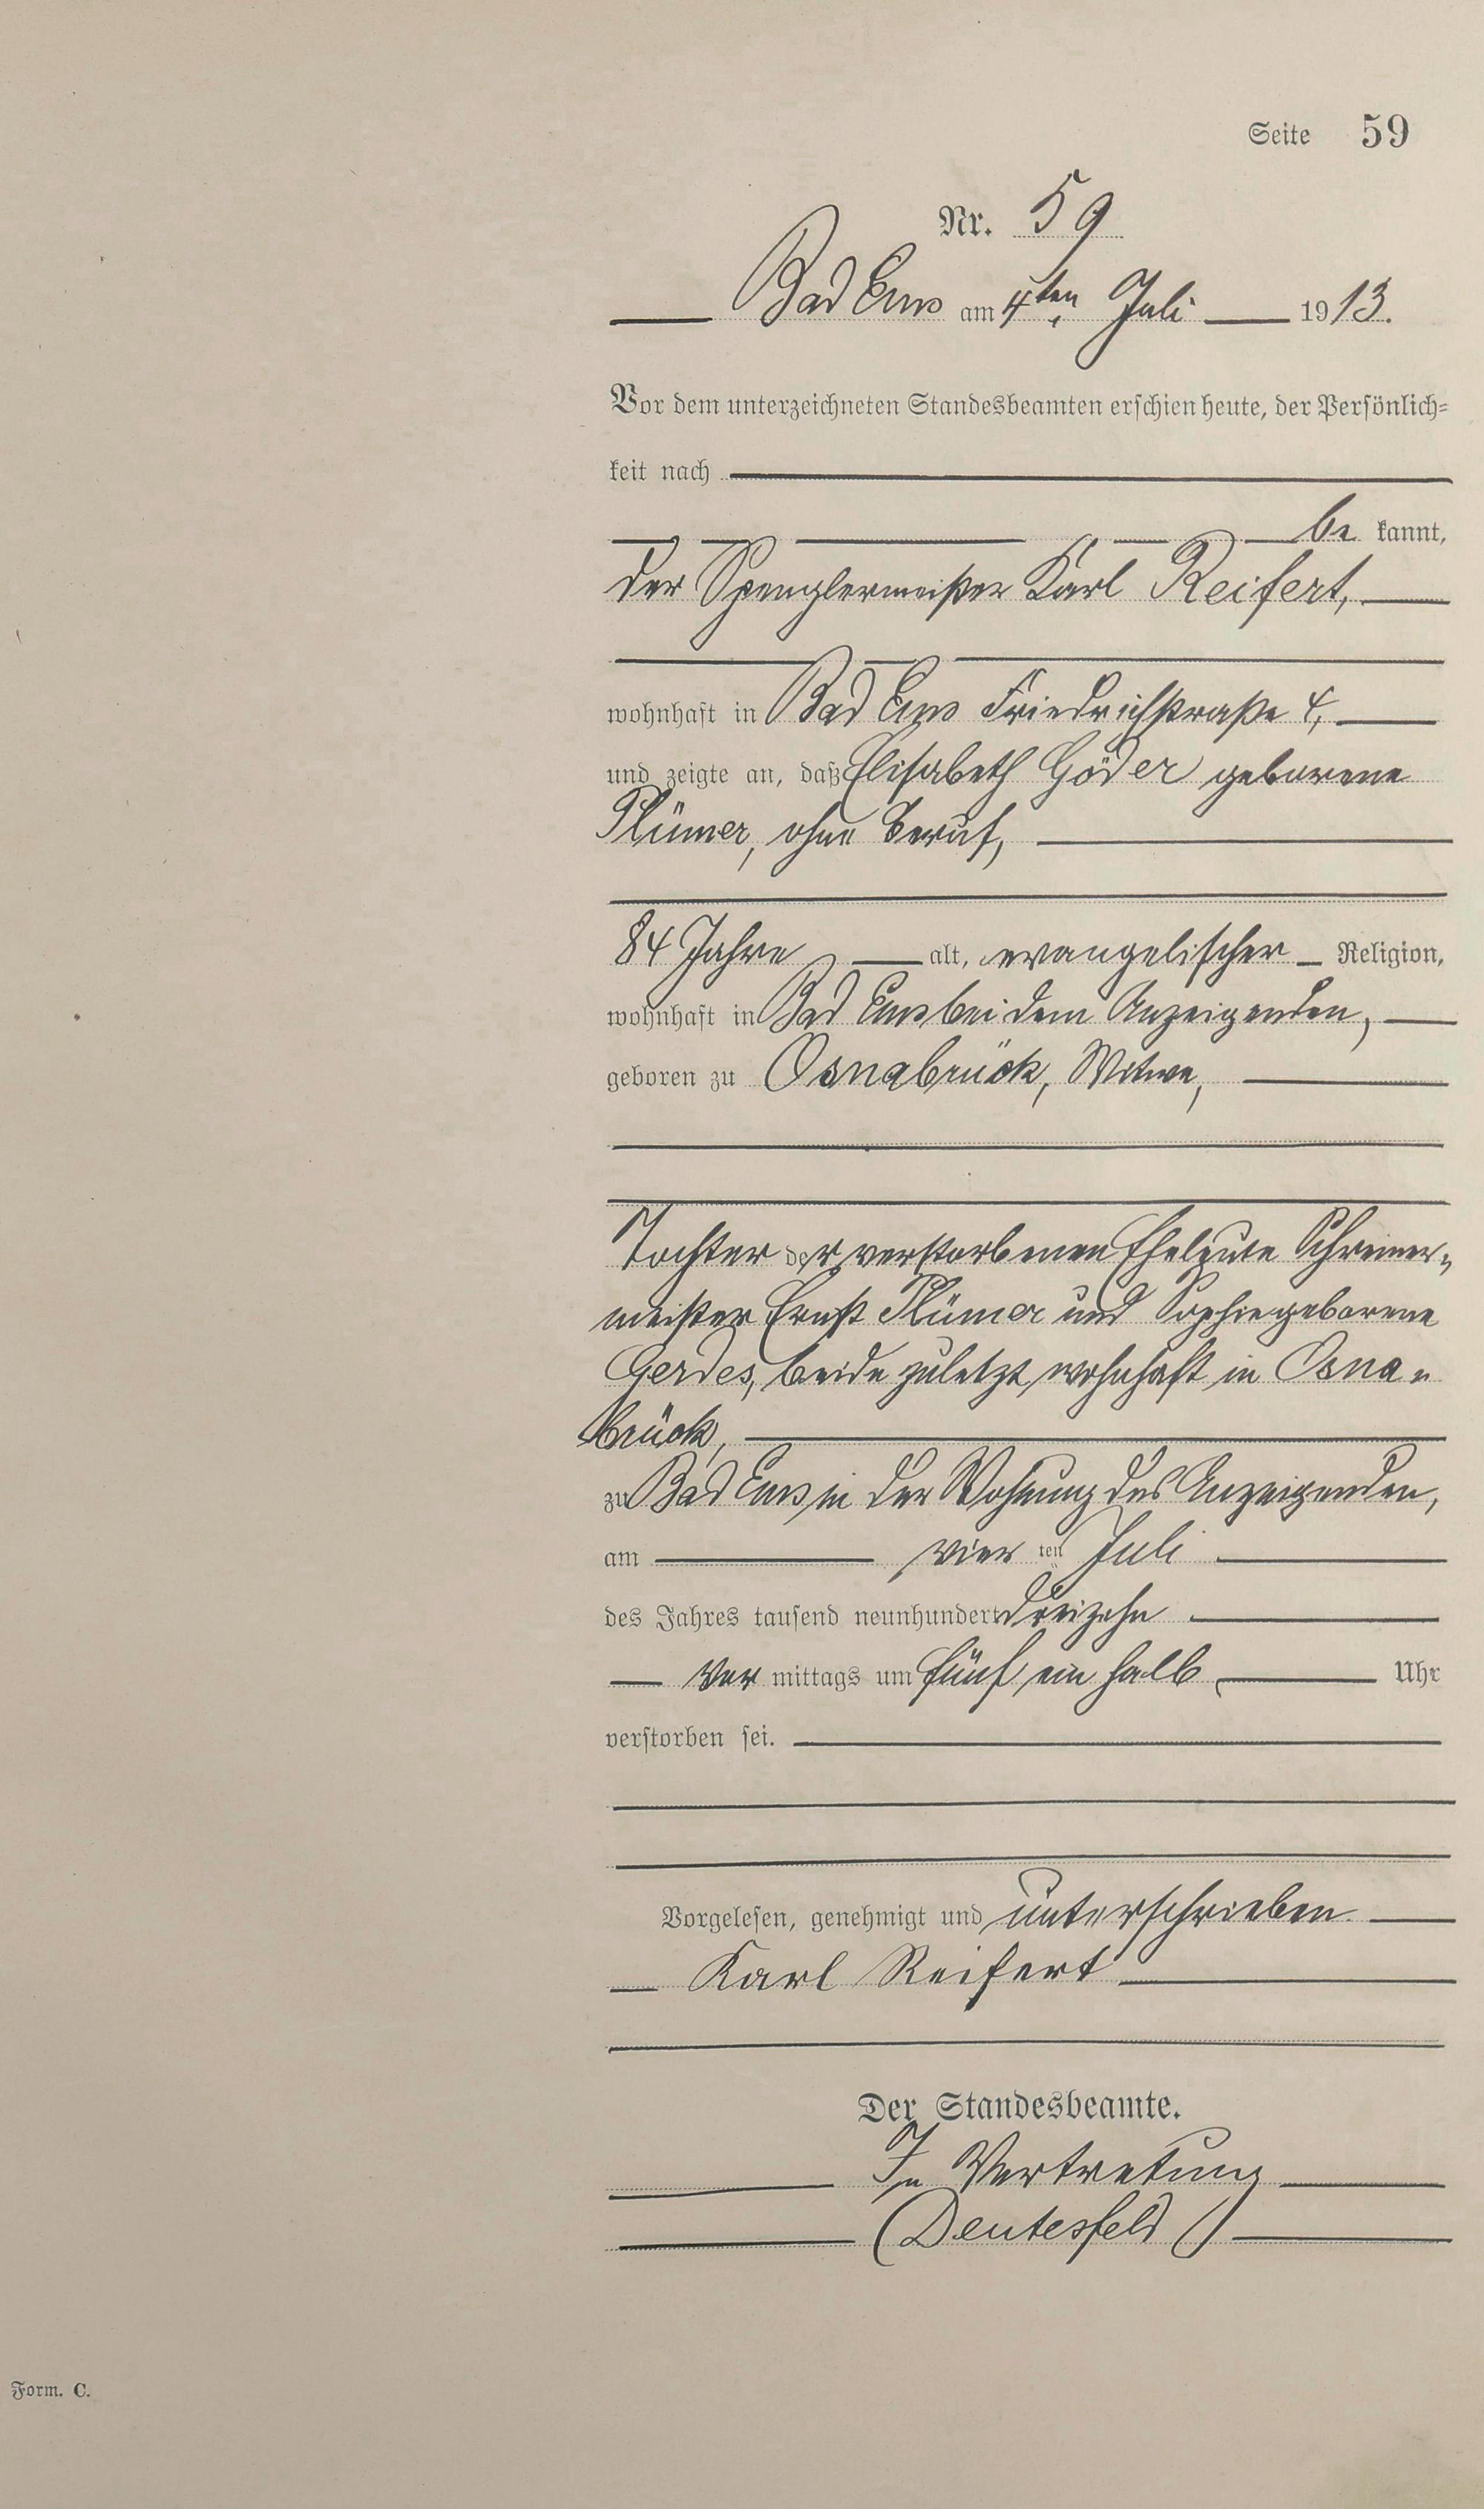 Seite 59
Nr. 59
Bad Ems am 4ten Juli 1913.
Vor dem unterzeichneten Standesbeamten erschien heute, der Persönlich=
keit nach
be kannt,
der Spenglermeister Karl Reifert,
wohnhaft in Bad Ems Friedrichstraße 4,
und zeigte an, daß Elisabeth Göder geborene
Plümer, ohne Beruf,
84 Jahre alt, evangelischer Religion,
wohnhaft in Bad Ems bei dem Anzeigenden,
geboren zu Osnabrück, Witwe,
Tochter der verstorbenen Eheleute Schreiner-
meister Ernst Plümer und Sophie geborene
Gerdes, beide zuletzt wohnhaft in Osna-
brück,
zu Bad Ems in der Wohnung des Anzeigenden,
am vier ten Juli
des Jahres tausend neunhundert dreizehn
Vor mittags um fünf ein halb Uhr
verstorben sei.
Vorgelesen, genehmigt und unterschrieben
Karl Reifert
Der Standesbeamte.
In Vertretung
(Deutesfeld)
Form. C.